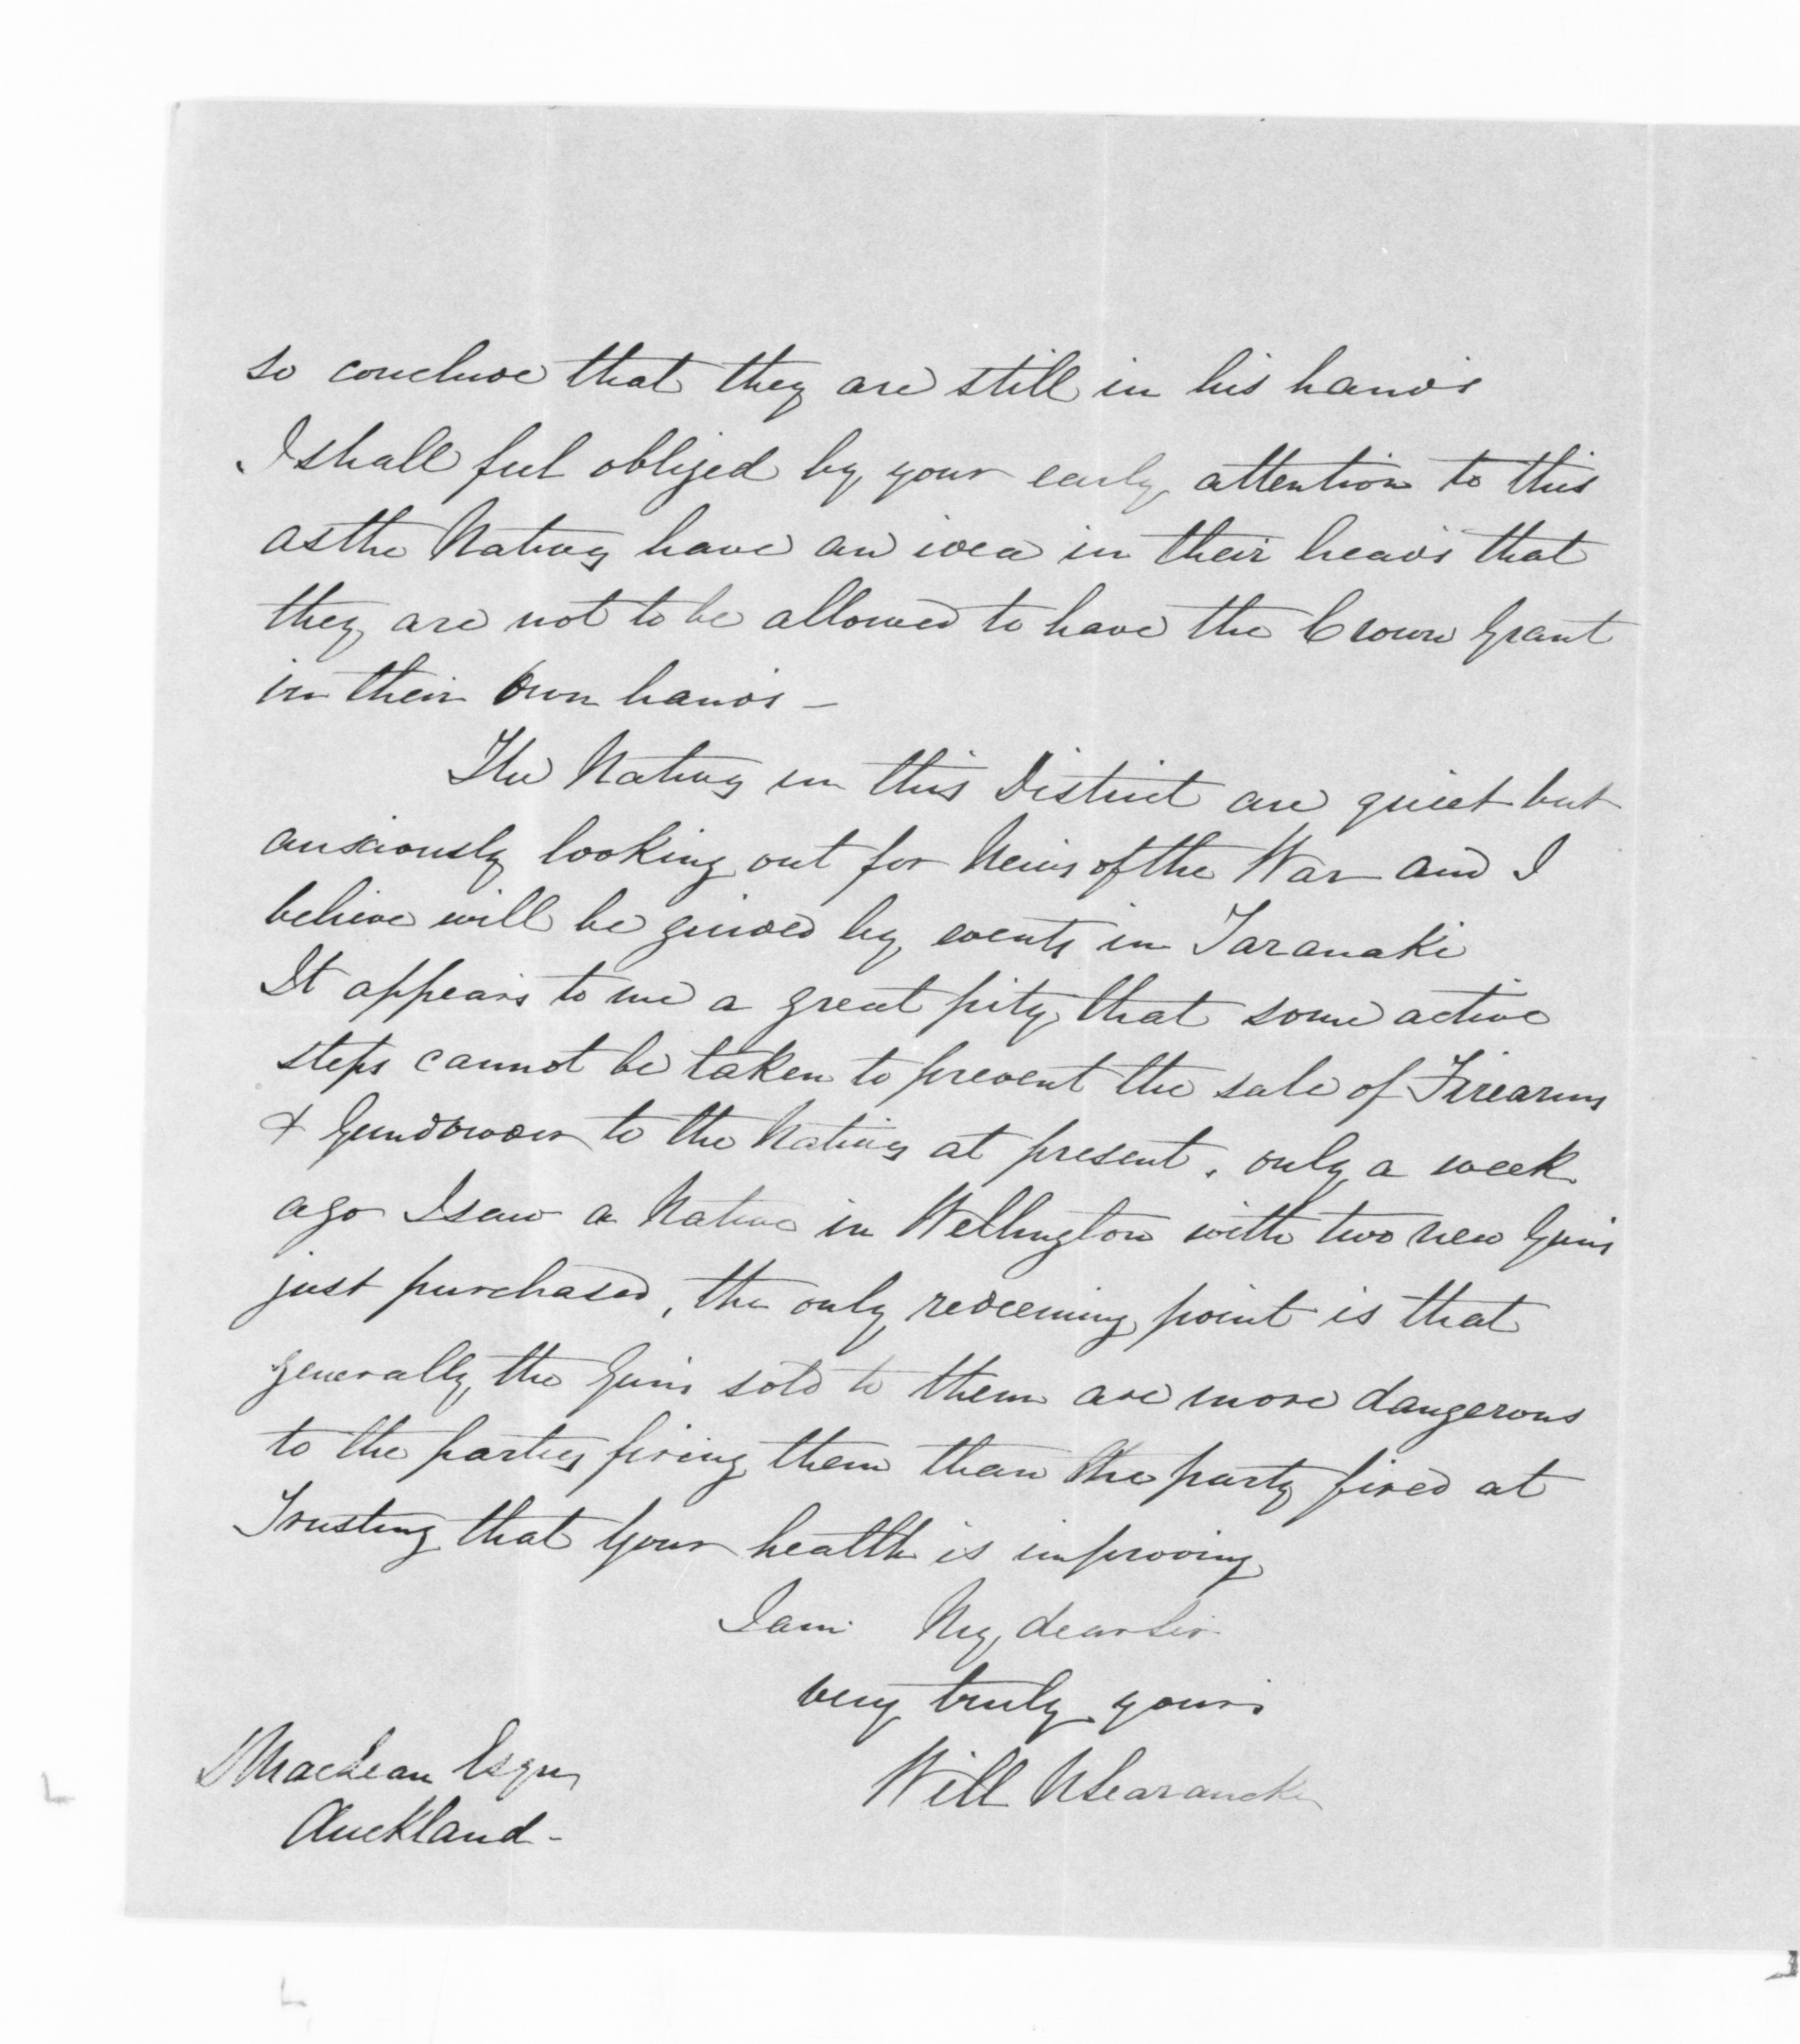 so conclude that they are still in his hands
I shall feel obliged by your early attention to this
as the Natives have an idea in their heads that
they are not to be allowed to have the Crown Grant
in their own hands –
The Natives in this District are quiet but
anxiously looking out for News of the War and I
believe will be guided by events in Taranaki
It appears to me a great pity that some active
steps cannot be taken to prevent the sale of Firearms
& Gunpowder to the Natives at present. only a week
ago I saw a Native in Wellington with two new Guns
just purchased, the only redeeming point is that
generally the Guns sold to them are more dangerous
to the parties firing them than the party fired at
Trusting that your health is improving
I am My dear Sir
very truly yours
Will N Searancke
D MacLean Esqre
Auckland –